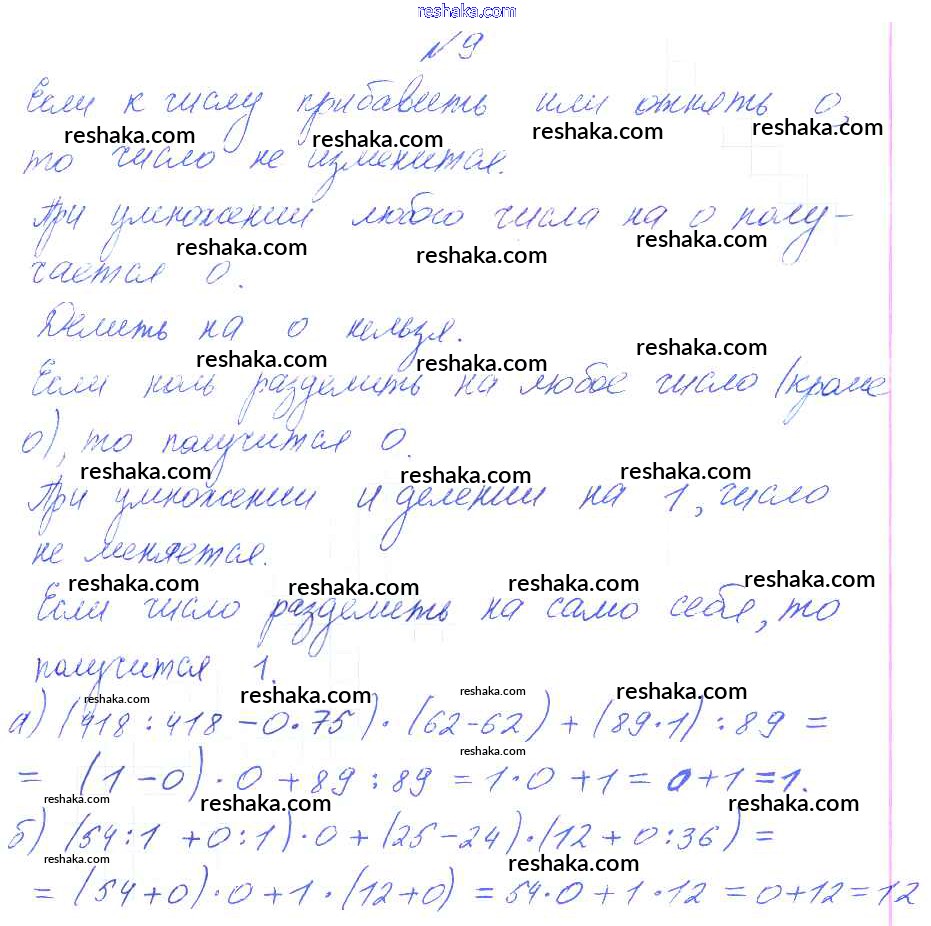 reshaka.com
№9
Если к числу прибавить или отнять 0,
то число не изменится.
При умножении любого числа на 0 полу-
чается 0.
Делить на 0 нельзя.
Если ноль разделить на любое число (кроме
0), то получится 0.
При умножении и делении на 1, число
не меняется.
Если число разделить на само себя, то
получится 1.
а) (418:418-0·75)·(62-62)+(89·1):89=
= (1-0)·0+89:89=1·0+1=0+1=1.
б) (54:1+0:1)·0+(25-24)·(12+0:36)=
= (54+0)·0+1·(12+0)=54·0+1·12=0+12=12
reshaka.com reshaka.com reshaka.com reshaka.com
reshaka.com reshaka.com reshaka.com
reshaka.com reshaka.com reshaka.com
reshaka.com reshaka.com reshaka.com
reshaka.com reshaka.com reshaka.com reshaka.com
reshaka.com reshaka.com reshaka.com reshaka.com
reshaka.com
reshaka.com reshaka.com reshaka.com
reshaka.com reshaka.com